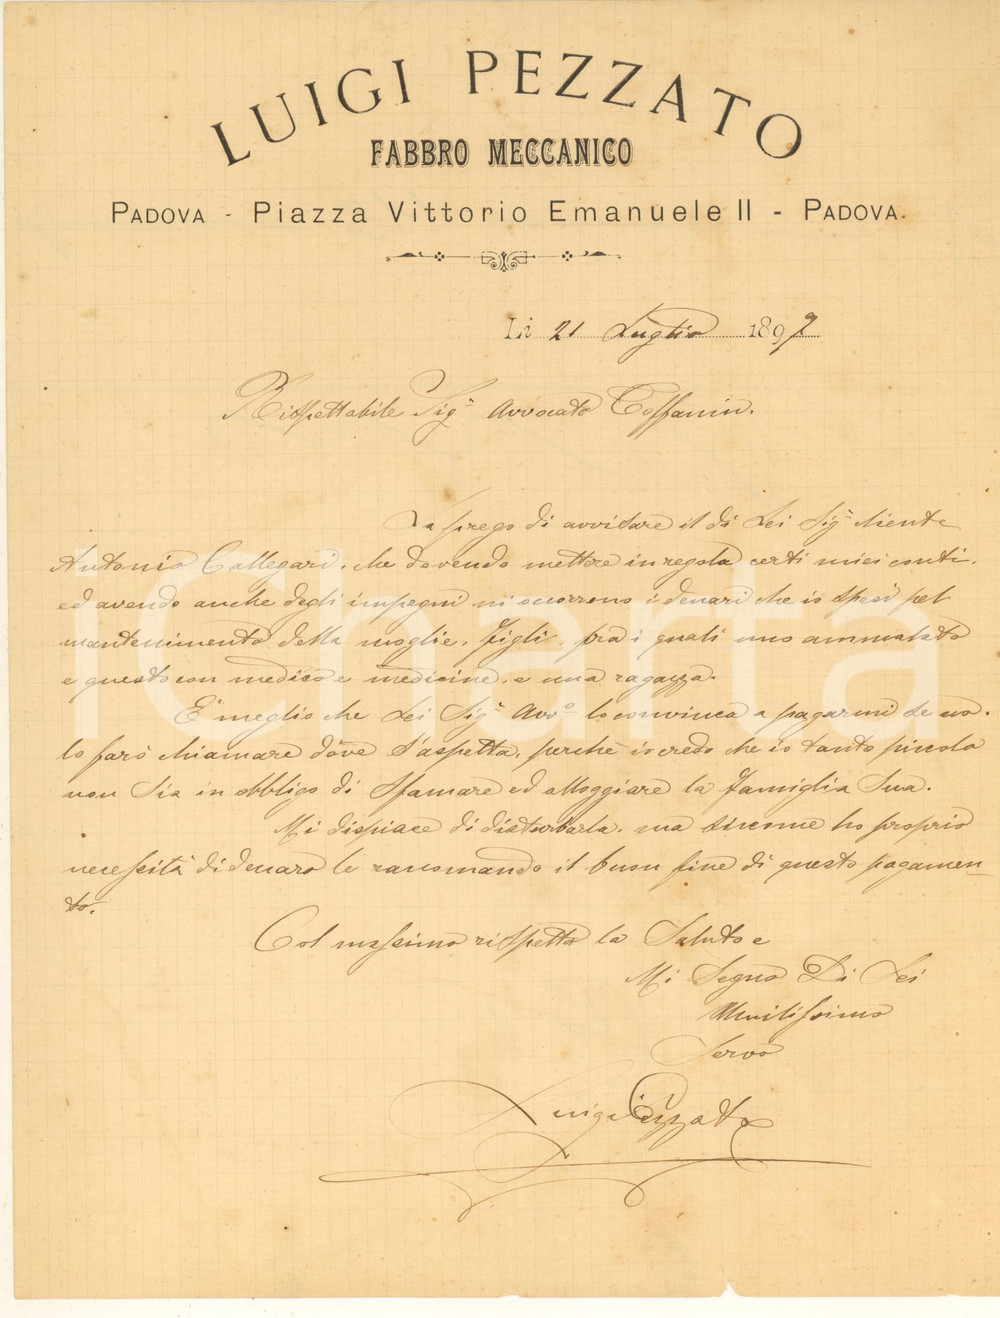 LUIGI PEZZATO
FABBRO MECCANICO
PADOVA - Piazza Vittorio Emanuele II - PADOVA.
Li 21 Luglio 1897
Rispettabile Sig.r Avvocato Toffanin.
La prego di avvisare il di Lei Sig.r cliente
Antonio Callegari, che dovendo mettere in regola certi miei conti,
ed avendo anche degli impegni mi ocorrono i denari che io spesi pel
mantenimento della moglie, figli, fra i quali uno ammalato
e questo con medico e medicine, e una ragazza.
E' meglio che Lei Sig.r Avv.o lo convinca a pagarmi se no
lo farò chiamare dove s'aspetta, perchè io credo che io tanto piccolo
non sia in obbligo di sfamare ed alloggiare la famiglia sua.
Mi dispiace di disturbarla, ma siccome ho proprio
necessità di denaro le racomando il buon fine di questo pagamen-
to.
Col massimo rispetto la Saluto e
Mi Segno Di Lei
Umilissimo
Servo
Luigi Pezzato
iCharta